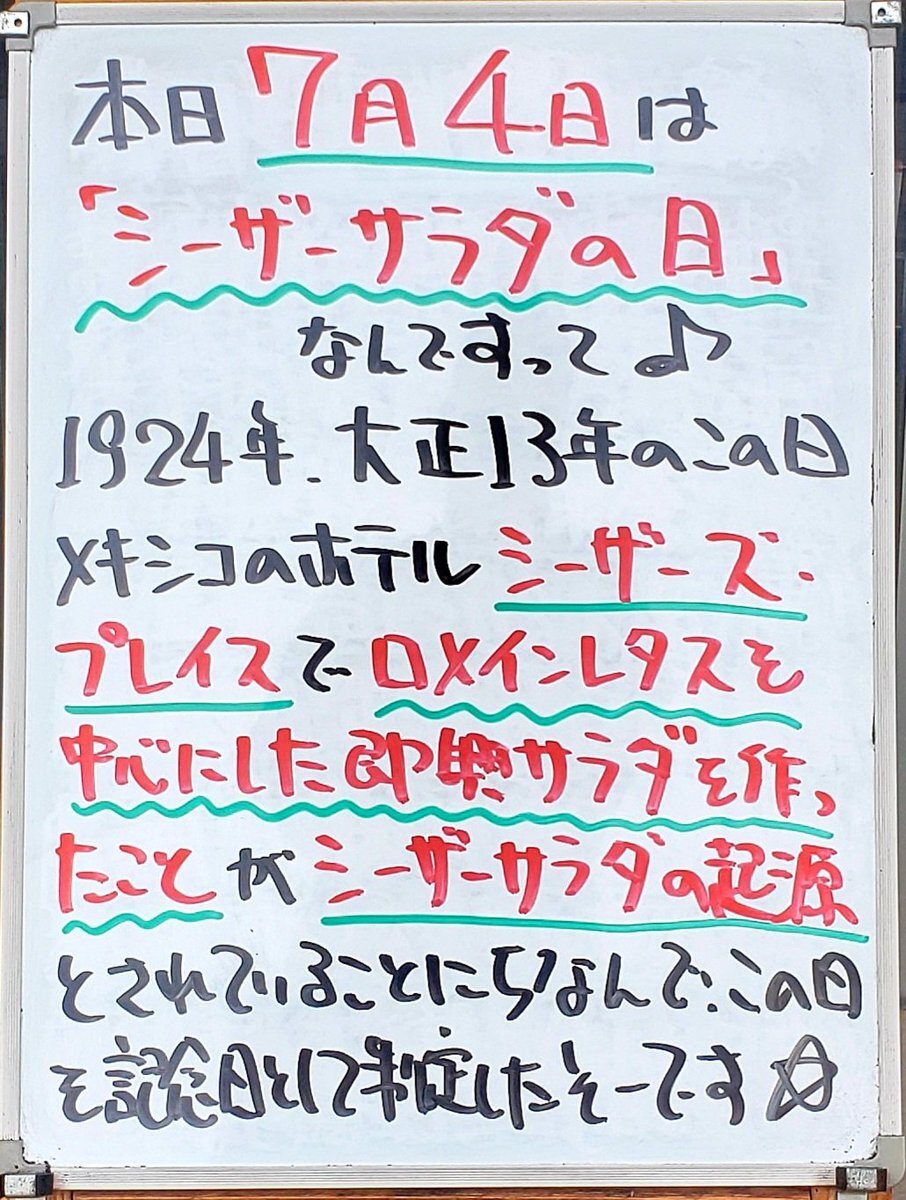 本日7月4日は
「シーザーサラダの日」
なんですって♪
1924年、大正13年のこの日
メキシコのホテルシーザーズ・
プレイスでロメインレタスを
中心にした即興サラダを作っ
たことがシーザーサラダの起源
とされていることにちなんで、この日
を記念日として制定したそーです☆